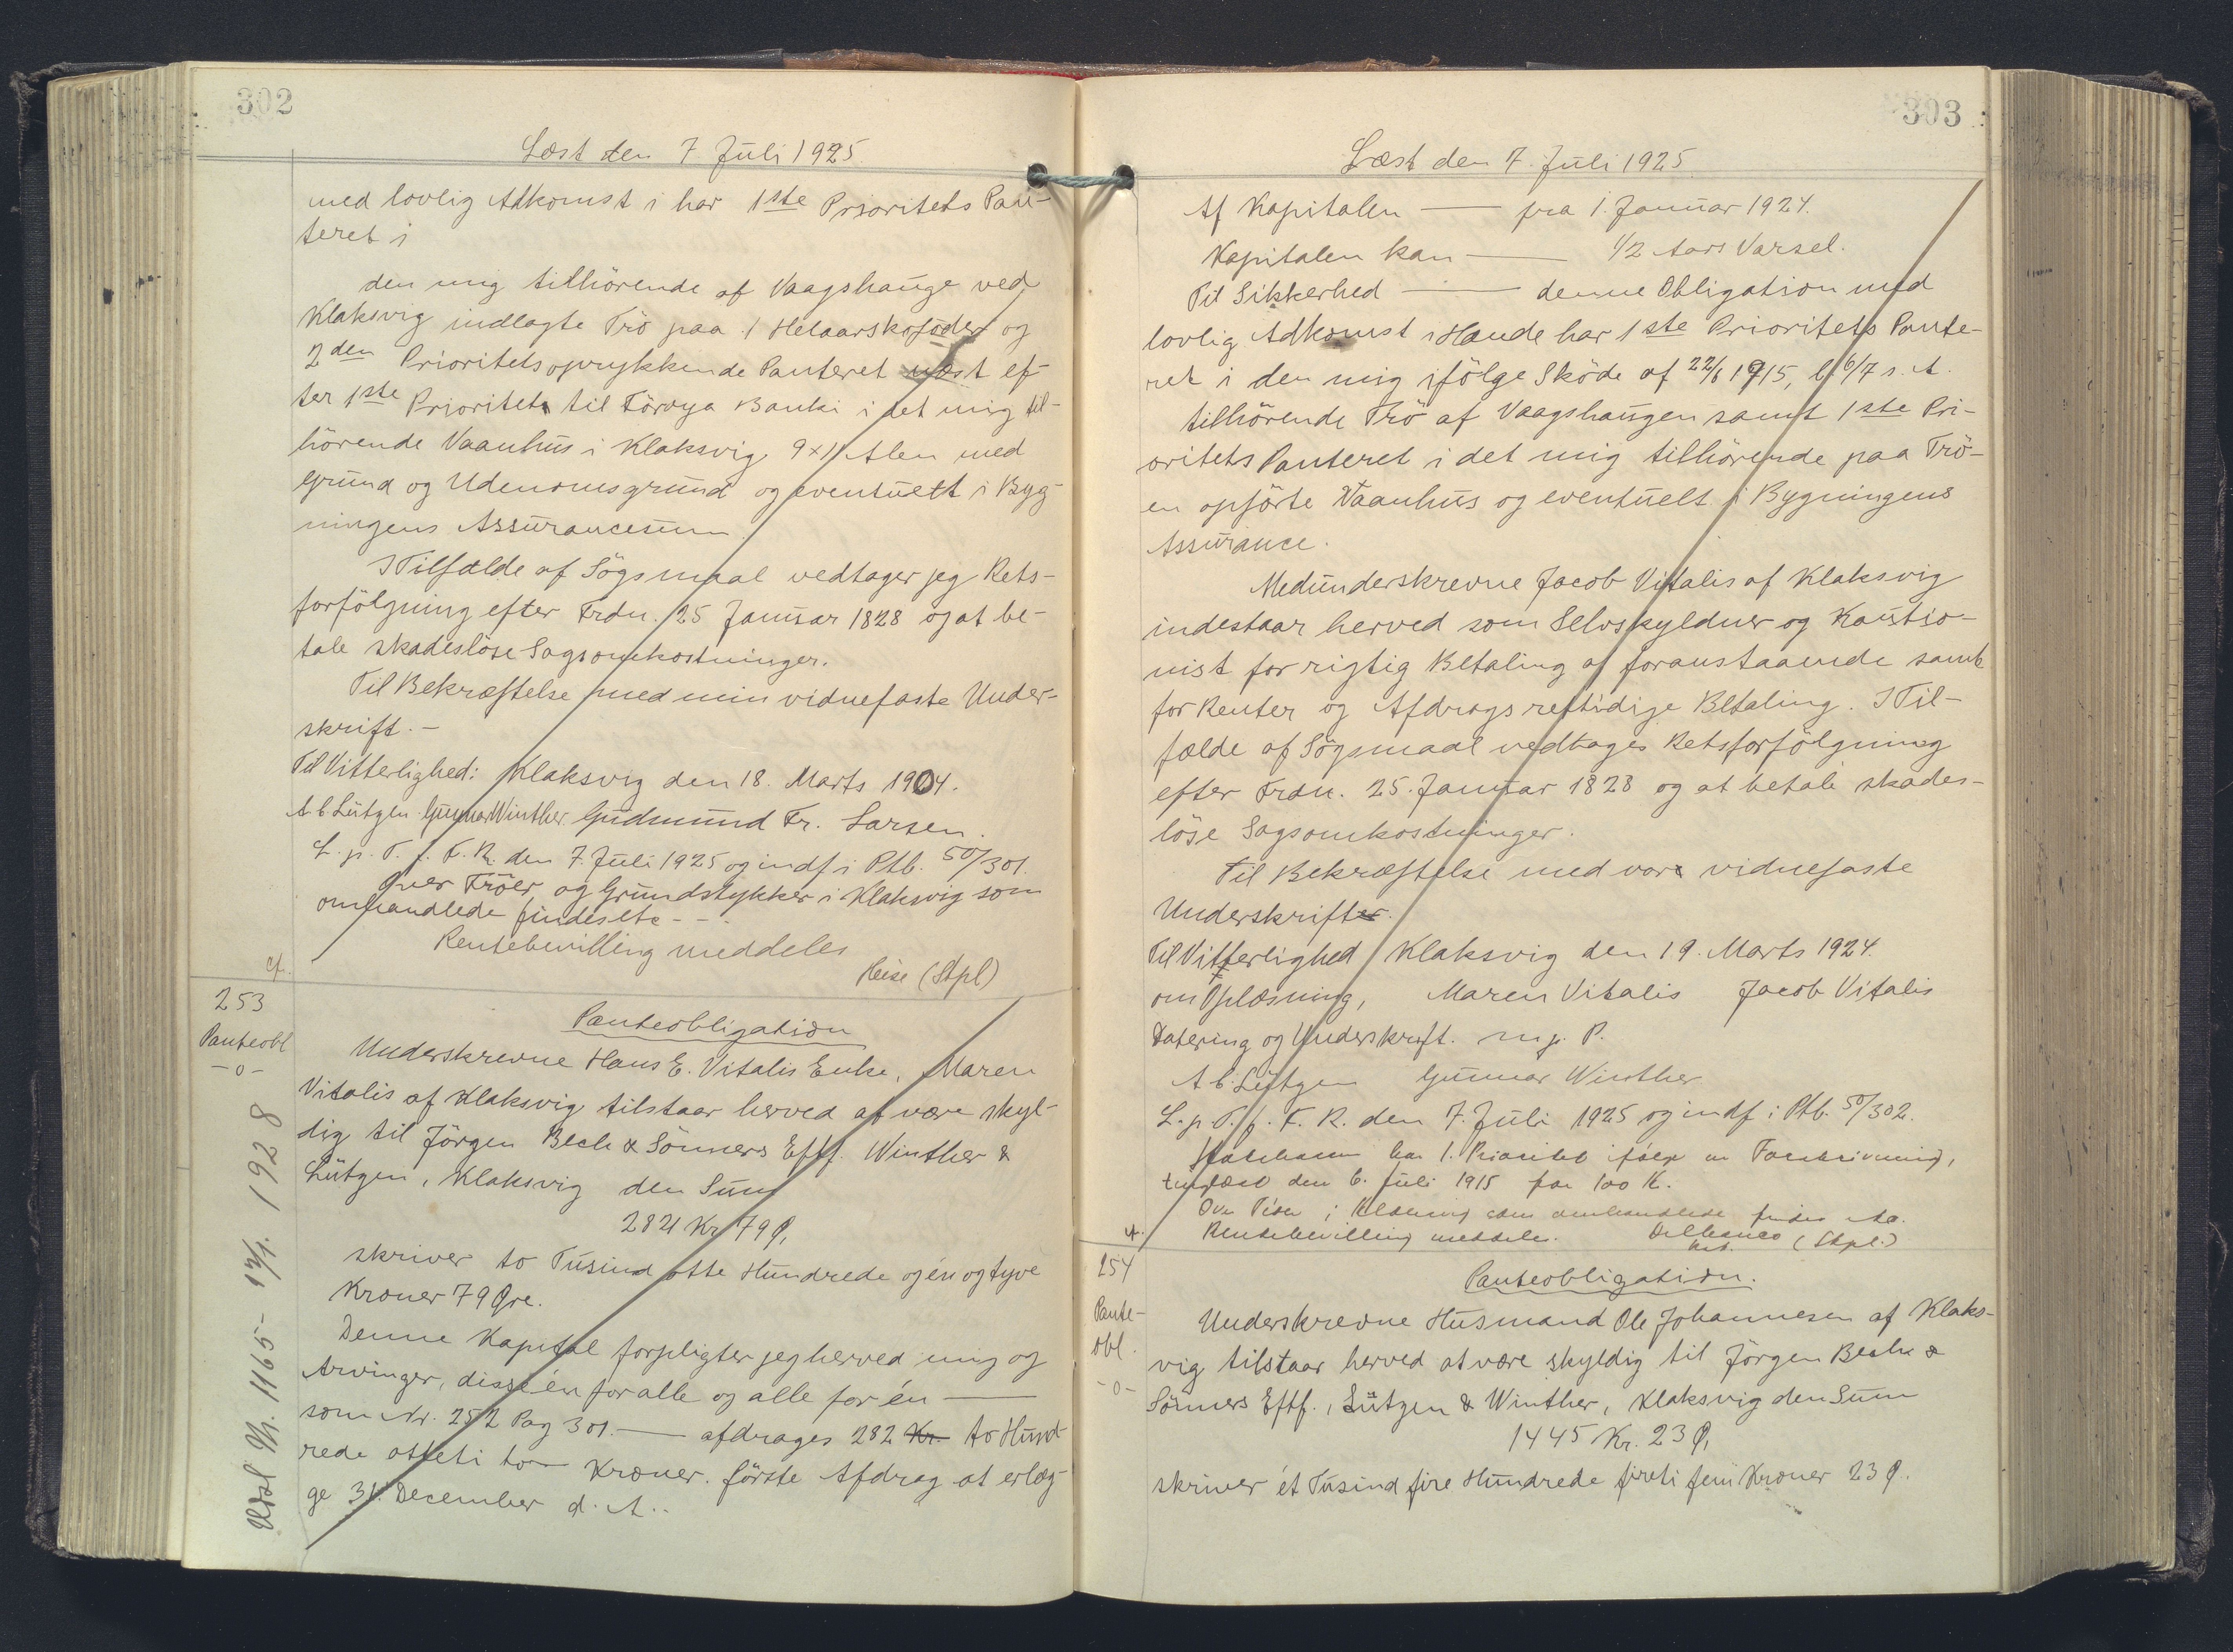 302
Læst den 7 Juli 1925
med lovlig Adkomst i har 1ste Prioritets Pan-
teret i
den mig tilhörende af Vaagshauge ved
Klaksvig indlagte Trö paa 1 Helaarskofoder og
2den Prioritets oprykkende Panteret næst ef-
ter 1ste Prioritet til Föroya Banki i det mig til-
hörende Vaanhus i Klaksvig 9x11 Alen med
Grund og Udenomsgrund og eventuelt i Byg-
ningens Assurancesum.
I Tilfælde af Sögsmaal vedtager jeg Rets-
forfölgning efter Frdn. 25 Januar 1828 og at be-
tale skadeslöse Sagsomkostninger.
Til Bekræftelse med min vidnefaste Under-
skrift.-
Til Vitterlighed: Klaksvig den 18. Marts 1904.
A C Lützen Gunnar Winther Gudmund Fr. Larsen.
L. p. T. f. F. R. den 7. Juli 1925 og indf i Ptb. 50/301.
Over Tröer og Grundstykker i Klaksvig som
omhandlede findes etc - - -
Rentebevilling meddeles
Heise (Stpl)
cf.
253
Panteobl
-o-
Udsl. Nr. 1165 - 1928
Panteobligation
Underskrevne Hans E. Vitalis Enke, Maren
Vitalis af Klaksvig tilstaar herved at være skyl-
dig til Jörgen Bech & Sönners Eftf. Winther &
Lützen, Klaksvig den Sum
2821 Kr 79 Ø,
skriver to Tusind otte Hundrede og én og tyve
Kroner 79 Øre.
Denne Kapital forpligter jeg herved mig og
Arvinger, disse én for alle og alle for én ——
som Nr. 252 Pag 301. —— afdrages 282 Kr. to Hund
rede otteti to — Kroner. förste Afdrag at erlæg-
ge 31. December d. A..
303
Læst den 7. Juli 1925
Af Kapitalen —— fra 1. Januar 1924.
Kapitalen kan —— 1/2 Aars Varsel.
Til Sikkerhed —— denne Obligation med
lovlig Adkomst i Hænde har 1ste Prioritets Pante-
ret i den mig ifölge Sköde af 22/6 1915, l. 6/7 s. A.
tilhörende Trö af Vaagshaugen samt 1ste Pri-
oritets Panteret i det mig tilhörende paa Trö-
en opförte Vaanhus og eventuelt i Bygningens
Assurance.
Medunderskrevne Jacob Vitalis af Klaksvig
indestaar herved som Selvskyldner og Kautio-
nist for rigtig Betaling af foranstaaende samt
for Renter og Afdrags rettidige Betaling. I Til-
fælde af Sögsmaal vedtages Retsforfölgning
efter Frdn. 25. Januar 1828 og at betale skades-
löse Sagsomkostninger.
Til Bekræftelse med vore vidnefaste
Underskrifter.
Til Vitterlighed Klaksvig den 19. Marts 1924.
om Oplæsning, Maren Vitalis Jacob Vitalis
Datering og Underskrift. m. p. P.
A C. Lützen Gunnar Winther
L. p. T. f. F. R. den 7. Juli 1925 og indf i Ptb. 50/302.
har 1. Prioritet ifölge en Forskrivning,
tinglæst den 6. Juli 1915 for 100 K.
som omhandlede findes etc.
Rentebevilling meddeles. (Stpl.)
cf.
254
Pante-
obl.
-o-
Panteobligation.
Underskrevne Husmand Ole Johannesen af Klaks-
vig tilstaar herved at være skyldig til Jörgen Bech &
Sönners Eftf., Lützen & Winther, Klaksvig den Sum
1445 Kr. 23 Ø,
skriver ét Tusind fire Hundrede fireti fem Kroner 23 Ø.